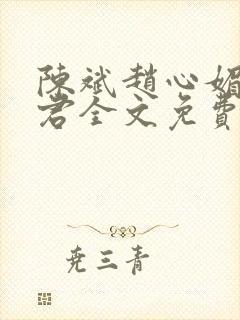 陳斌趙心媚
君全文免費
堯三青